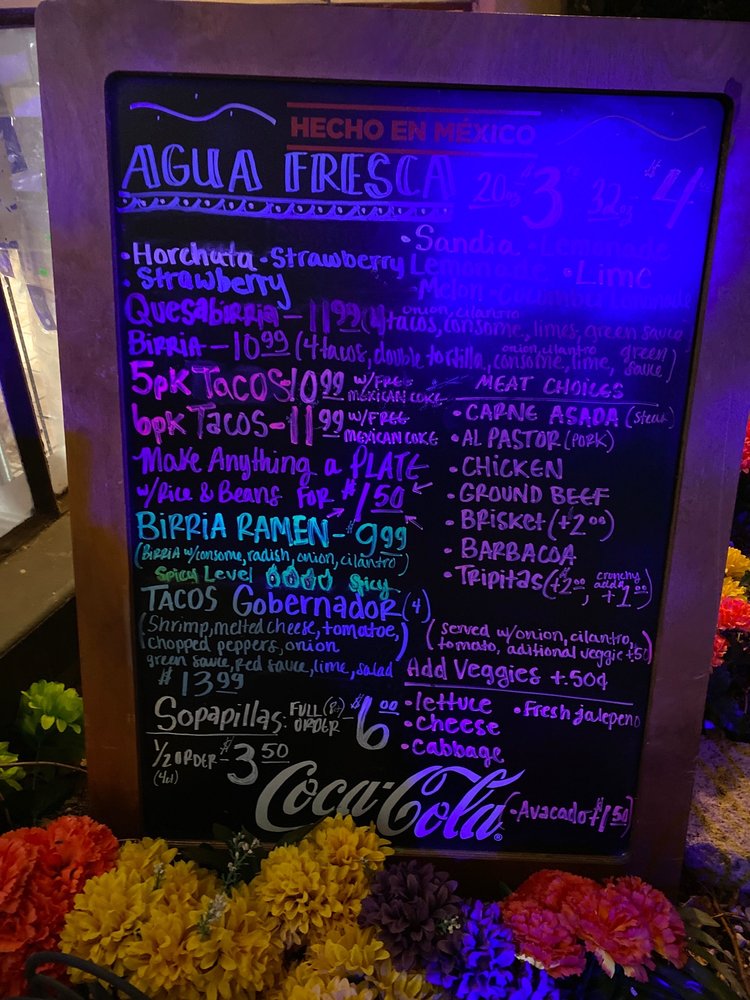 HECHO EN MÉXICO
AGUA FRESCA 20oz $3 32oz $4
• Sandia • Lemonade
• Horchata • Strawberry Lemonade • Lime
• Strawberry • Melon • Cucumber Lemonade
onion, cilantro
Quesabirria - 11.99 (4 tacos, consome, limes, green sauce
onion, cilantro green
Birria - 10.99 (4 tacos, double tortilla, consome, lime, sauce)
5pk TACOS - 10.99 w/FREE MEXICAN COKE
6pk TACOS - 11.99 w/FREE MEXICAN COKE
Make Anything a PLATE
w/Rice & Beans For $1.50
BIRRIA RAMEN - $9.99
(BIRRIA w/consome, radish, onion, cilantro)
Spicy Level Spicy
TACOS Gobernador (4)
(Shrimp, melted cheese, tomatoe,
chopped peppers, onion)
green sauce, red sauce, lime, salad
$13.99
Sopapillas: FULL (8) ORDER - $6.00
1/2 ORDER - $3.50
(4)
MEAT CHOICES
• CARNE ASADA (steak)
• AL PASTOR (PORK)
• CHICKEN
• GROUND BEEF
• BRISKET (+2.00)
• BARBACOA
• Tripitas (+$2.00, crunchy add +$1.00)
(served w/onion, cilantro,
tomato, aditional veggie +.50)
Add Veggies +.50¢
• lettuce • Fresh jalepeño
• cheese
• cabbage
Coca-Cola
(• Avacado +$1.50)